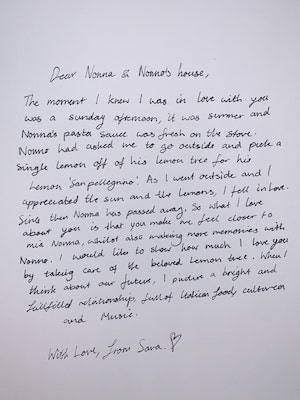 Dear Nonna & Nonno's house,
The moment I knew I was in love with you
was a sunday afternoon, it was summer and
Nonna's pasta sauce was fresh on the stove.
Nonno had asked me to go outside and pick a
single lemon off of his lemon tree for his
Lemon 'San pellegrino'. As I went outside and I
appreciated the sun and the lemons, I fell in love.
Since then Nonna has passed away, So what I love
about you is that you make me feel closer to
mia Nonna, whilst also making more memories with
Nonno. I would like to show how much I love you
by taking care of the beloved lemon tree. When I
think about our future, I a bright and
fullfilled relationship, full of Italian food,
and Music.
With Love, from Sara.